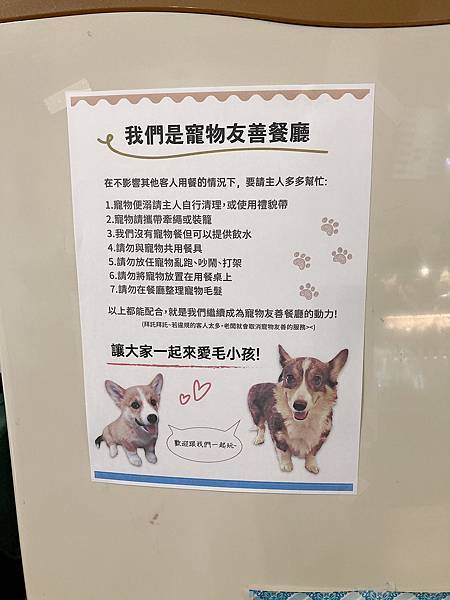 我們是寵物友善餐廳
在不影響其他客人用餐的情況下，要請主人多多幫忙:
1.寵物便溺請主人自行清理,或使用禮貌帶
2.寵物請攜帶牽繩或裝籠
3.我們沒有寵物餐但可以提供飲水
4.請勿與寵物共用餐具
5.請勿放任寵物亂跑、吵鬧、打架
6.請勿將寵物放置在用餐桌上
7.請勿在餐廳整理寵物毛髮
以上都能配合,就是我們繼續成為寵物友善餐廳的動力!
(拜託拜託~若違規的客人太多,老闆就會取消寵物友善的服務><)
讓大家一起來愛毛小孩!
歡迎跟我們一起玩~